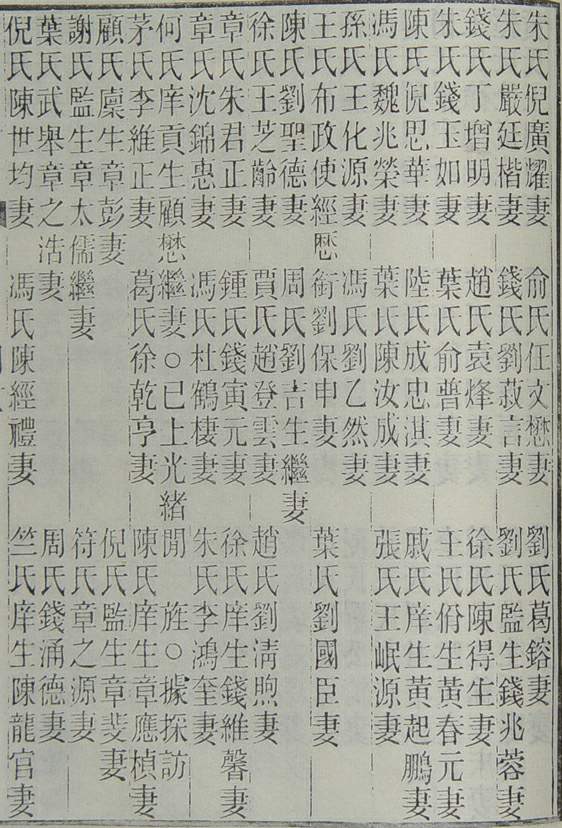 朱氏倪廣耀妻 俞氏任文懋妻 劉氏葛鎔妻
朱氏嚴廷楷妻 錢氏劉菽言妻 劉氏監生錢兆蓉妻
錢氏丁增明妻 趙氏袁烽妻 徐氏陳得生妻
朱氏錢玉如妻 葉氏俞普妻 王氏俏生黃春元妻
陳氏倪思華妻 陸氏成忠淇妻 戚氏庠生黃起鵬妻
馮氏魏兆榮妻 葉氏陳汝成妻 張氏王岷源妻
孫氏王化源妻 馮氏劉乙然妻
王氏布政使經歷銜劉保申妻 葉氏劉國臣妻
陳氏劉聖德妻 周氏劉吉生繼妻
徐氏王芝齡妻 賈氏趙登雲妻 趙氏劉淸煦妻
章氏朱君正妻 鍾氏錢寅元妻 徐氏庠生錢維馨妻
章氏沈錦惠妻 馮氏杜鶴棲妻 朱氏李鴻奎妻
何氏庠貢生顧懋繼妻○已上光緒閒 旌○據採訪
茅氏李維正妻 葛氏徐乾亨妻 陳氏庠生章應楨妻
顧氏廩生章彭妻 倪氏監生章斐妻
謝氏監生章太儒繼妻 符氏章之源妻
葉氏武舉章之浩妻 周氏錢涌德妻
倪氏陳世均妻 馮氏陳經禮妻 竺氏庠生陳龍官妻